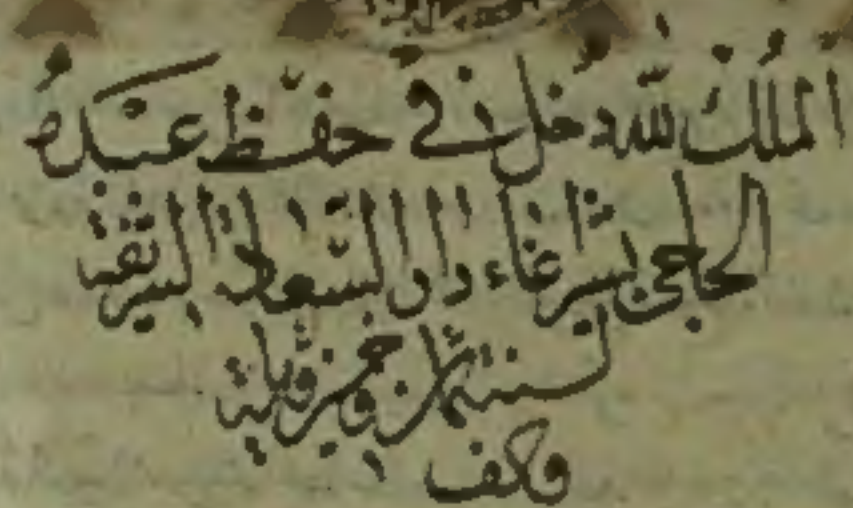 الملك لله دخل في حفظ عبده
الحاجي بشير اغاء دار السعادة الشريفة
لسنة ثمان وخمسين ومائة
والف